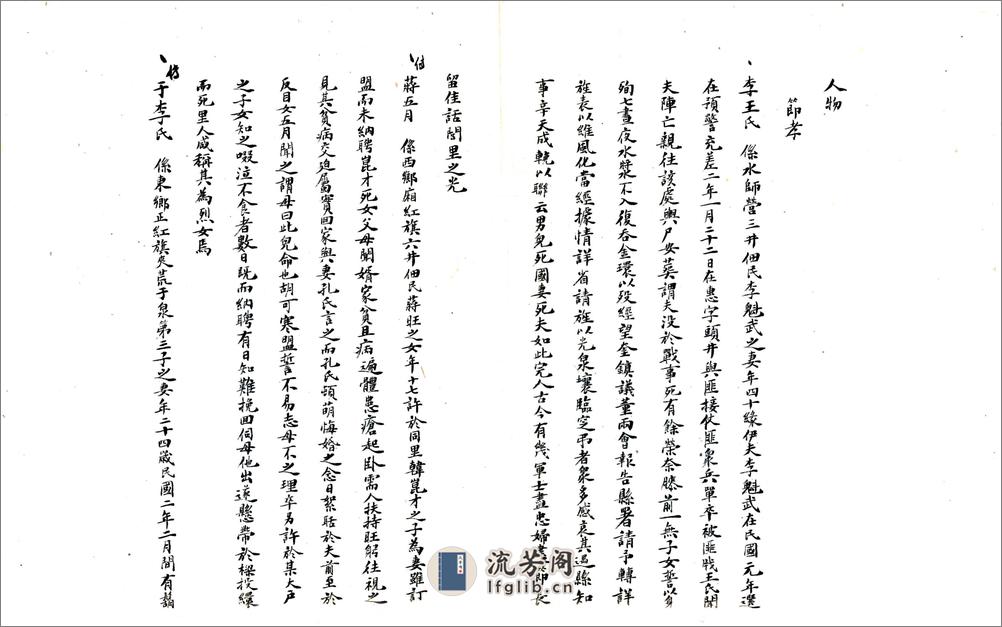 人物
節孝
李王氏 係水師營三井佃民李魁武之妻年四十緣伊夫李魁武在民國元年選
在預警充差二年一月二十二日在惠字頭井與匪接仗匪衆兵單卒被匪戕王氏聞
夫陣亡親往該處輿尸安葬謂夫没於戰事死有餘榮奈膝前一無子女誓以身
殉七晝夜水漿不入復吞金環以殁經望奎鎮議董兩會報告縣署請予轉詳
旌表以維風化當經據情詳省請旌以光泉壤臨窆弔者衆多感哀其過縣知
事辛天成輓以聯云男兒死國妻死夫如此完人古今有幾軍士盡忠婦盡節長
留佳話閭里之光
傳
蔣五月 係西鄉廂紅旗六井佃民蔣旺之女年十七許於同里韓崑才之子為妻雖訂
盟而未納聘崑才死女父母聞婿家貧且病遍體患瘡起卧需人扶持旺躬往視之
見其貧病交迫屬實回家與妻孔氏言之而孔氏頓萌悔婚之念日絮聒於夫前至於
反目女五月聞之謂母曰此兒命也胡可寒盟誓不易志母不之理卒另許於某大户
之子女知之啜泣不食者數日既而納聘有日知難挽回伺母他出遂懸帶於樑投繯
而死里人咸稱其為烈女焉
傳
于李氏 係東鄉正紅旗 荒于泉第三子之妻年二十四歲民國二年二月間有鬍
流芳阁
lfglib.cn